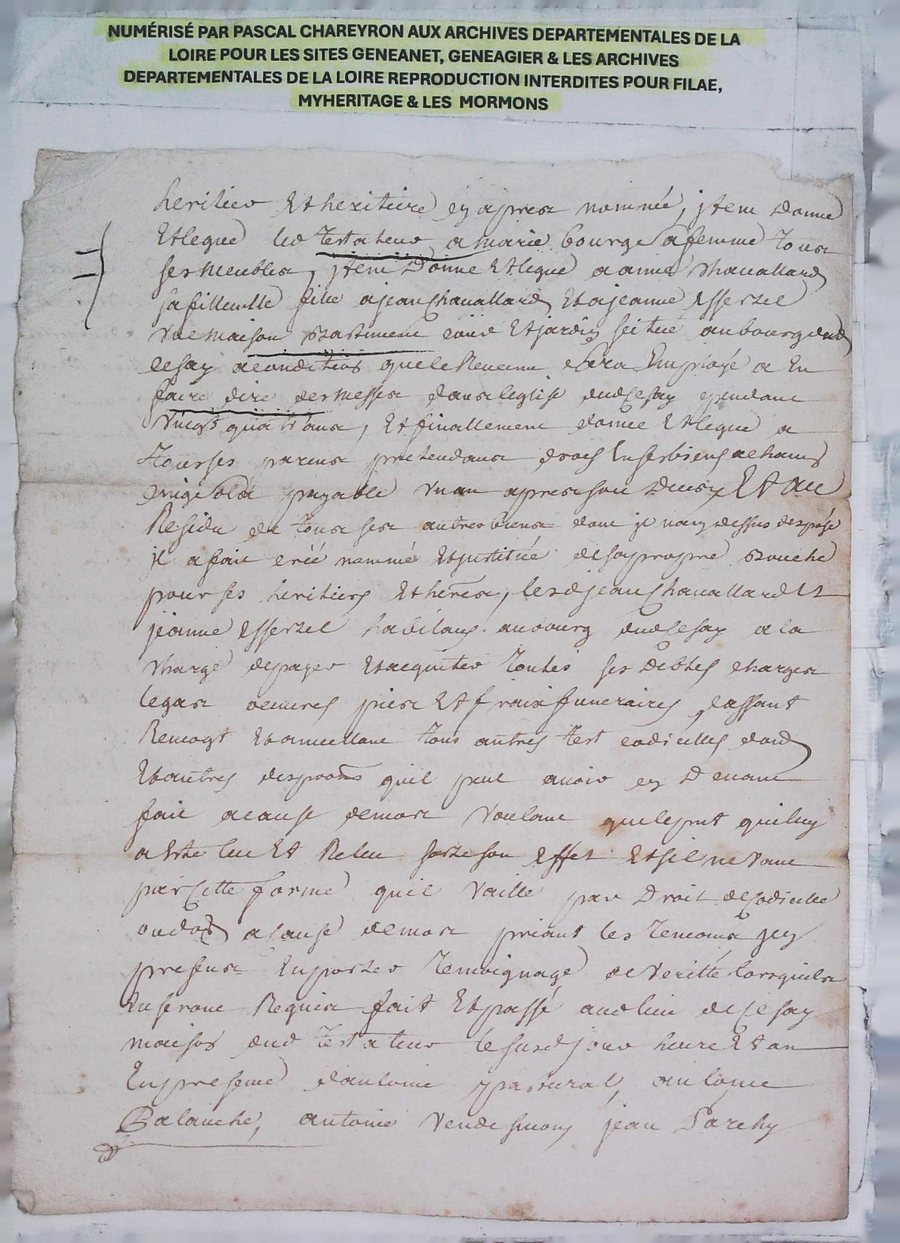 NUMÉRISÉ PAR PASCAL CHAREYRON AUX ARCHIVES DEPARTEMENTALES DE LA
LOIRE POUR LES SITES GENEANET, GENEAGIER & LES ARCHIVES
DEPARTEMENTALES DE LA LOIRE REPRODUCTION INTERDITES POUR FILAE,
MYHERITAGE & LES MORMONS
heritier et heritiere cy apres nommée, jtem donne
et legue led testateur a marie bourge sa femme tous
ses meubles, jtem donne et legue a anne chavallard
sa filleulle fille a jean chavallard et a jeanne essertel
une maison bastiment cour et jardin scitué au bourg dud
cesay a condition que le Revenu sera Employé a En
faire dire des messes dans leglise dud cesay pendant
vingt quatre ans, et finallement donne et legue a
tous ses parens pretendans droit en ses biens a chacun
cinq sols payable un an apres son deces Et au
Residu de tous ses autres biens dont je nay dessus disposé
jl a fait creé nommé et jnstitué de sa propre bouche
pour ses heritiers et heres, lesd jean chavallard et
jeanne essertel habitans au bourg dud cesay a la
charge de payer et acquiter toutes ses debtes charges
legas oeuvres pies et fraix funeraires, cassant
Revocqt et annullant tous autres test codicilles don
et autres dispoons quil peut avoir cy devant
fait a cause de mort voulant que le pnt qui luy
a esté lu et Relu sorte son effet et sil ne vaut
par cette forme quil vaille par droit de codicille
ou don a cause de mort priant les temoins jcy
presens en porter temoignage de verité lorsquils
en seront Requis fait et passé aud lieu de cesay
maison dud testateur le susd jour heure et an
en presence dantoine pastural, antoine
Palanche, antoine vendesmons jean Parchy